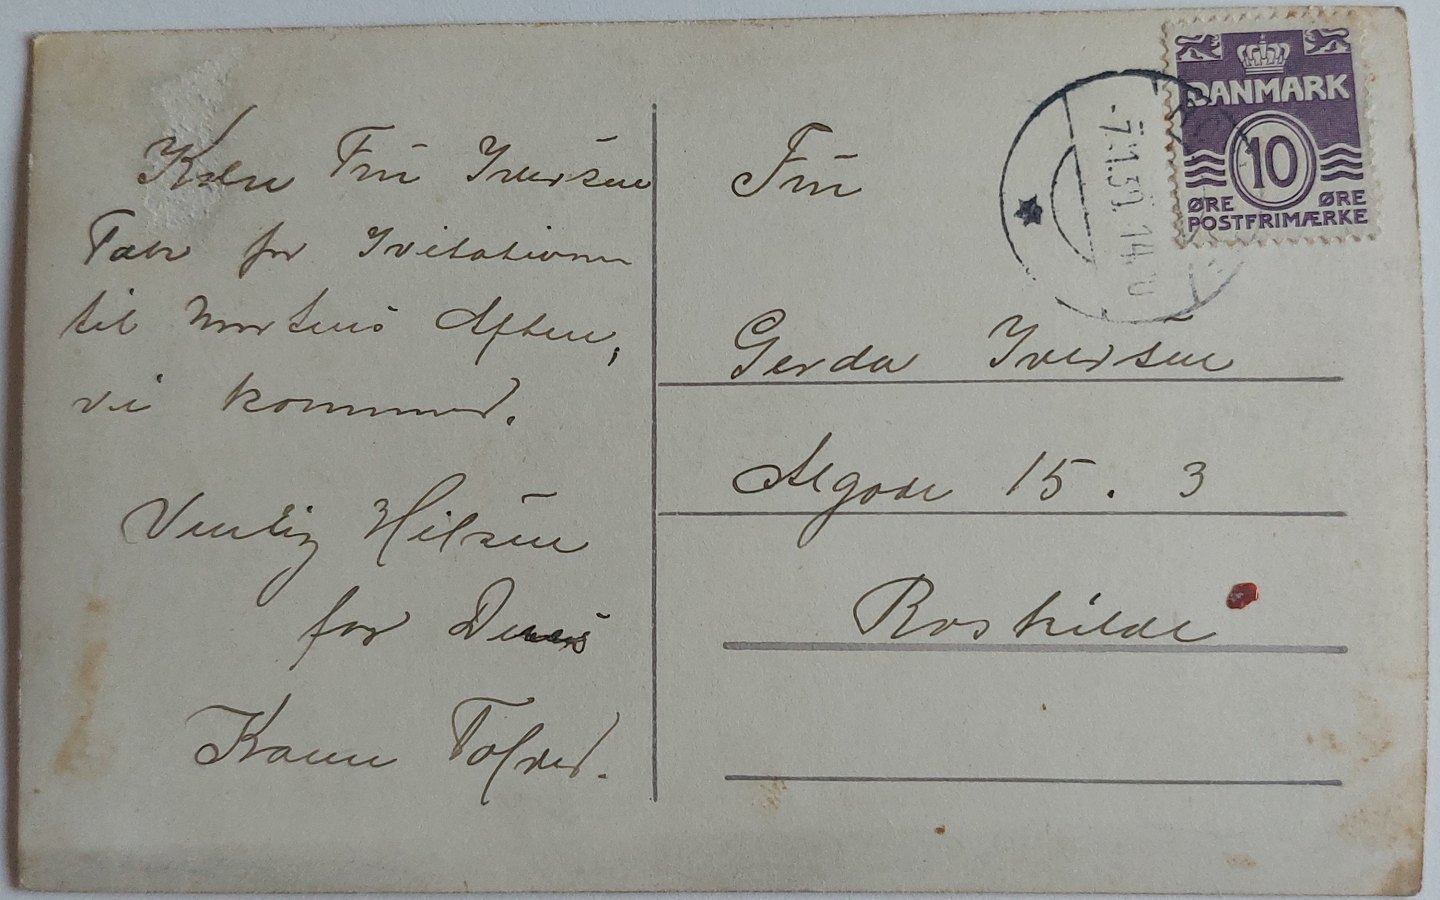 Kære Fru Iversen
Tak for Ivitationen
til Mortens Aften,
vi kommer.
Venlig Hilsen
for Deres
Karen Tolver.
DANMARK
10
ØRE ØRE
POSTFRIMÆRKE
-7.1.39. 14.
Fru
Gerda Iversen
Algade 15. 3
Roskilde